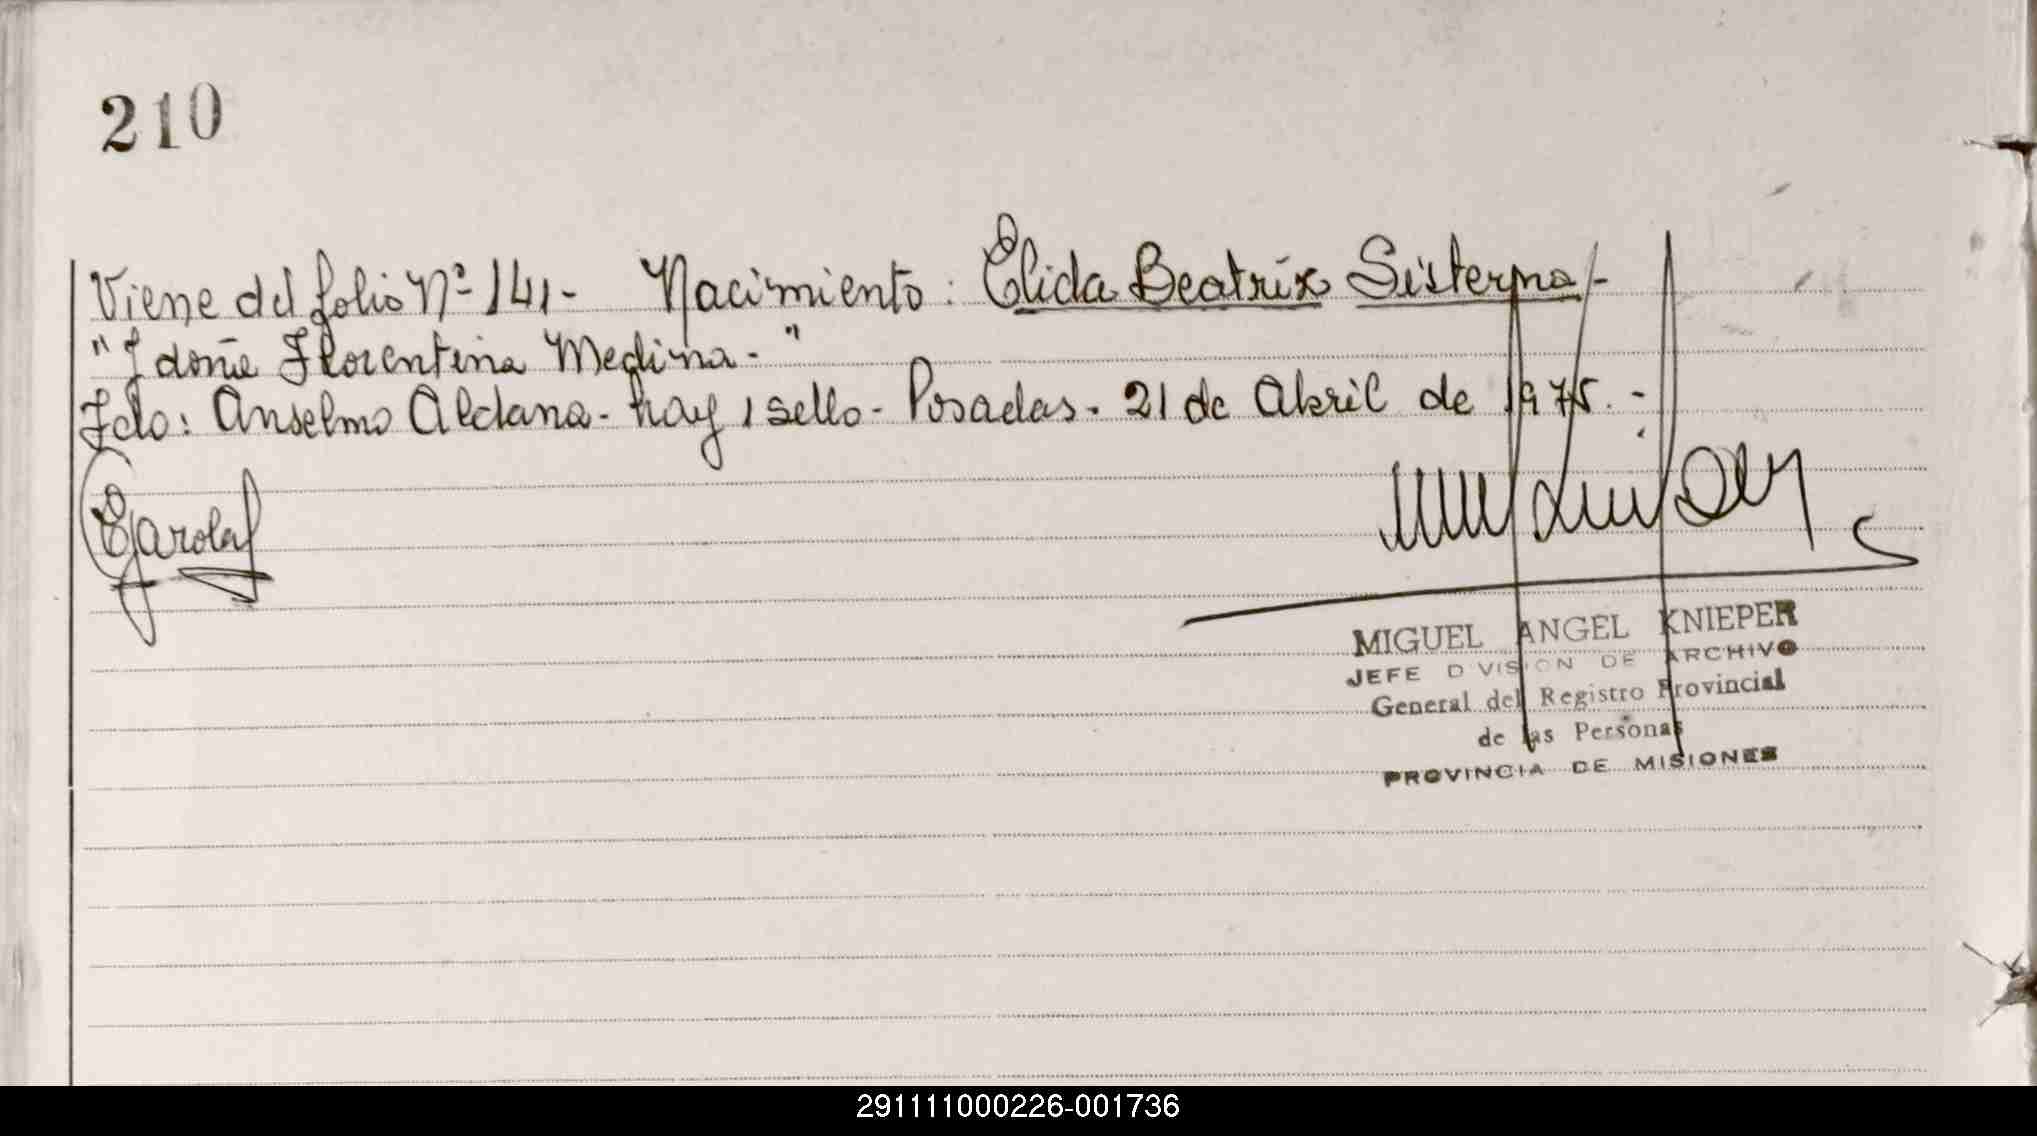 210
Viene del folio Nº 141- Nacimiento: Elida Beatrix Sisterna-
"I doña Florentina Medina-"
Fdo: Anselmo Aldana- hay 1 sello- Posadas- 21 de Abril de 1975.-
MIGUEL ANGEL KNIEPER
JEFE DIVISION DE ARCHIVO
General del Registro Provincial
de las Personas
PROVINCIA DE MISIONES
291111000226-001736